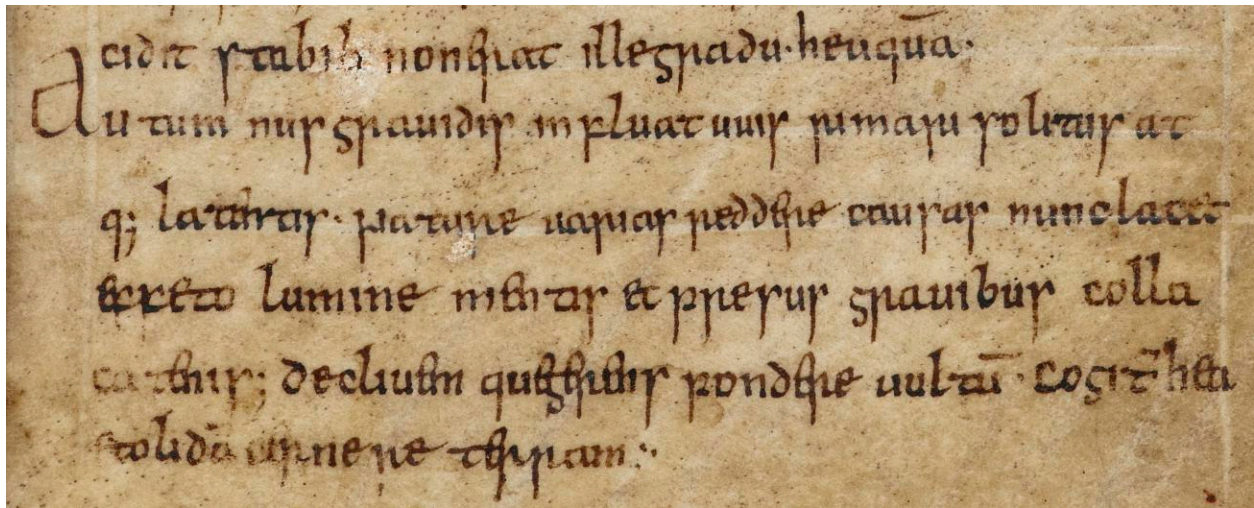 cidit stabili non erat ille gradu · heu quā ·
Autumnus grauidis influat uuis rimari solitus at
q; latentis · nature uarias reddere causas nunc iacet
effeto lumine mentis et presus grauibus colla
catenis; decliuem que gerens pondere uultū · Cogit̄ heu
stolidā cernere terram :·